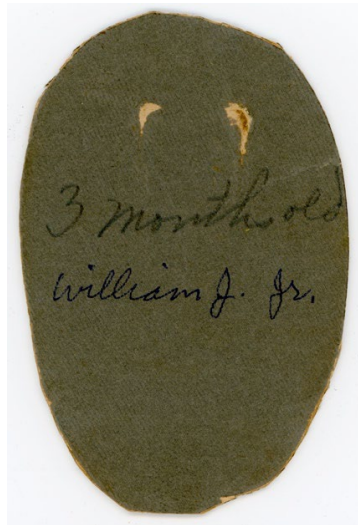 3 months old
William J. Jr.